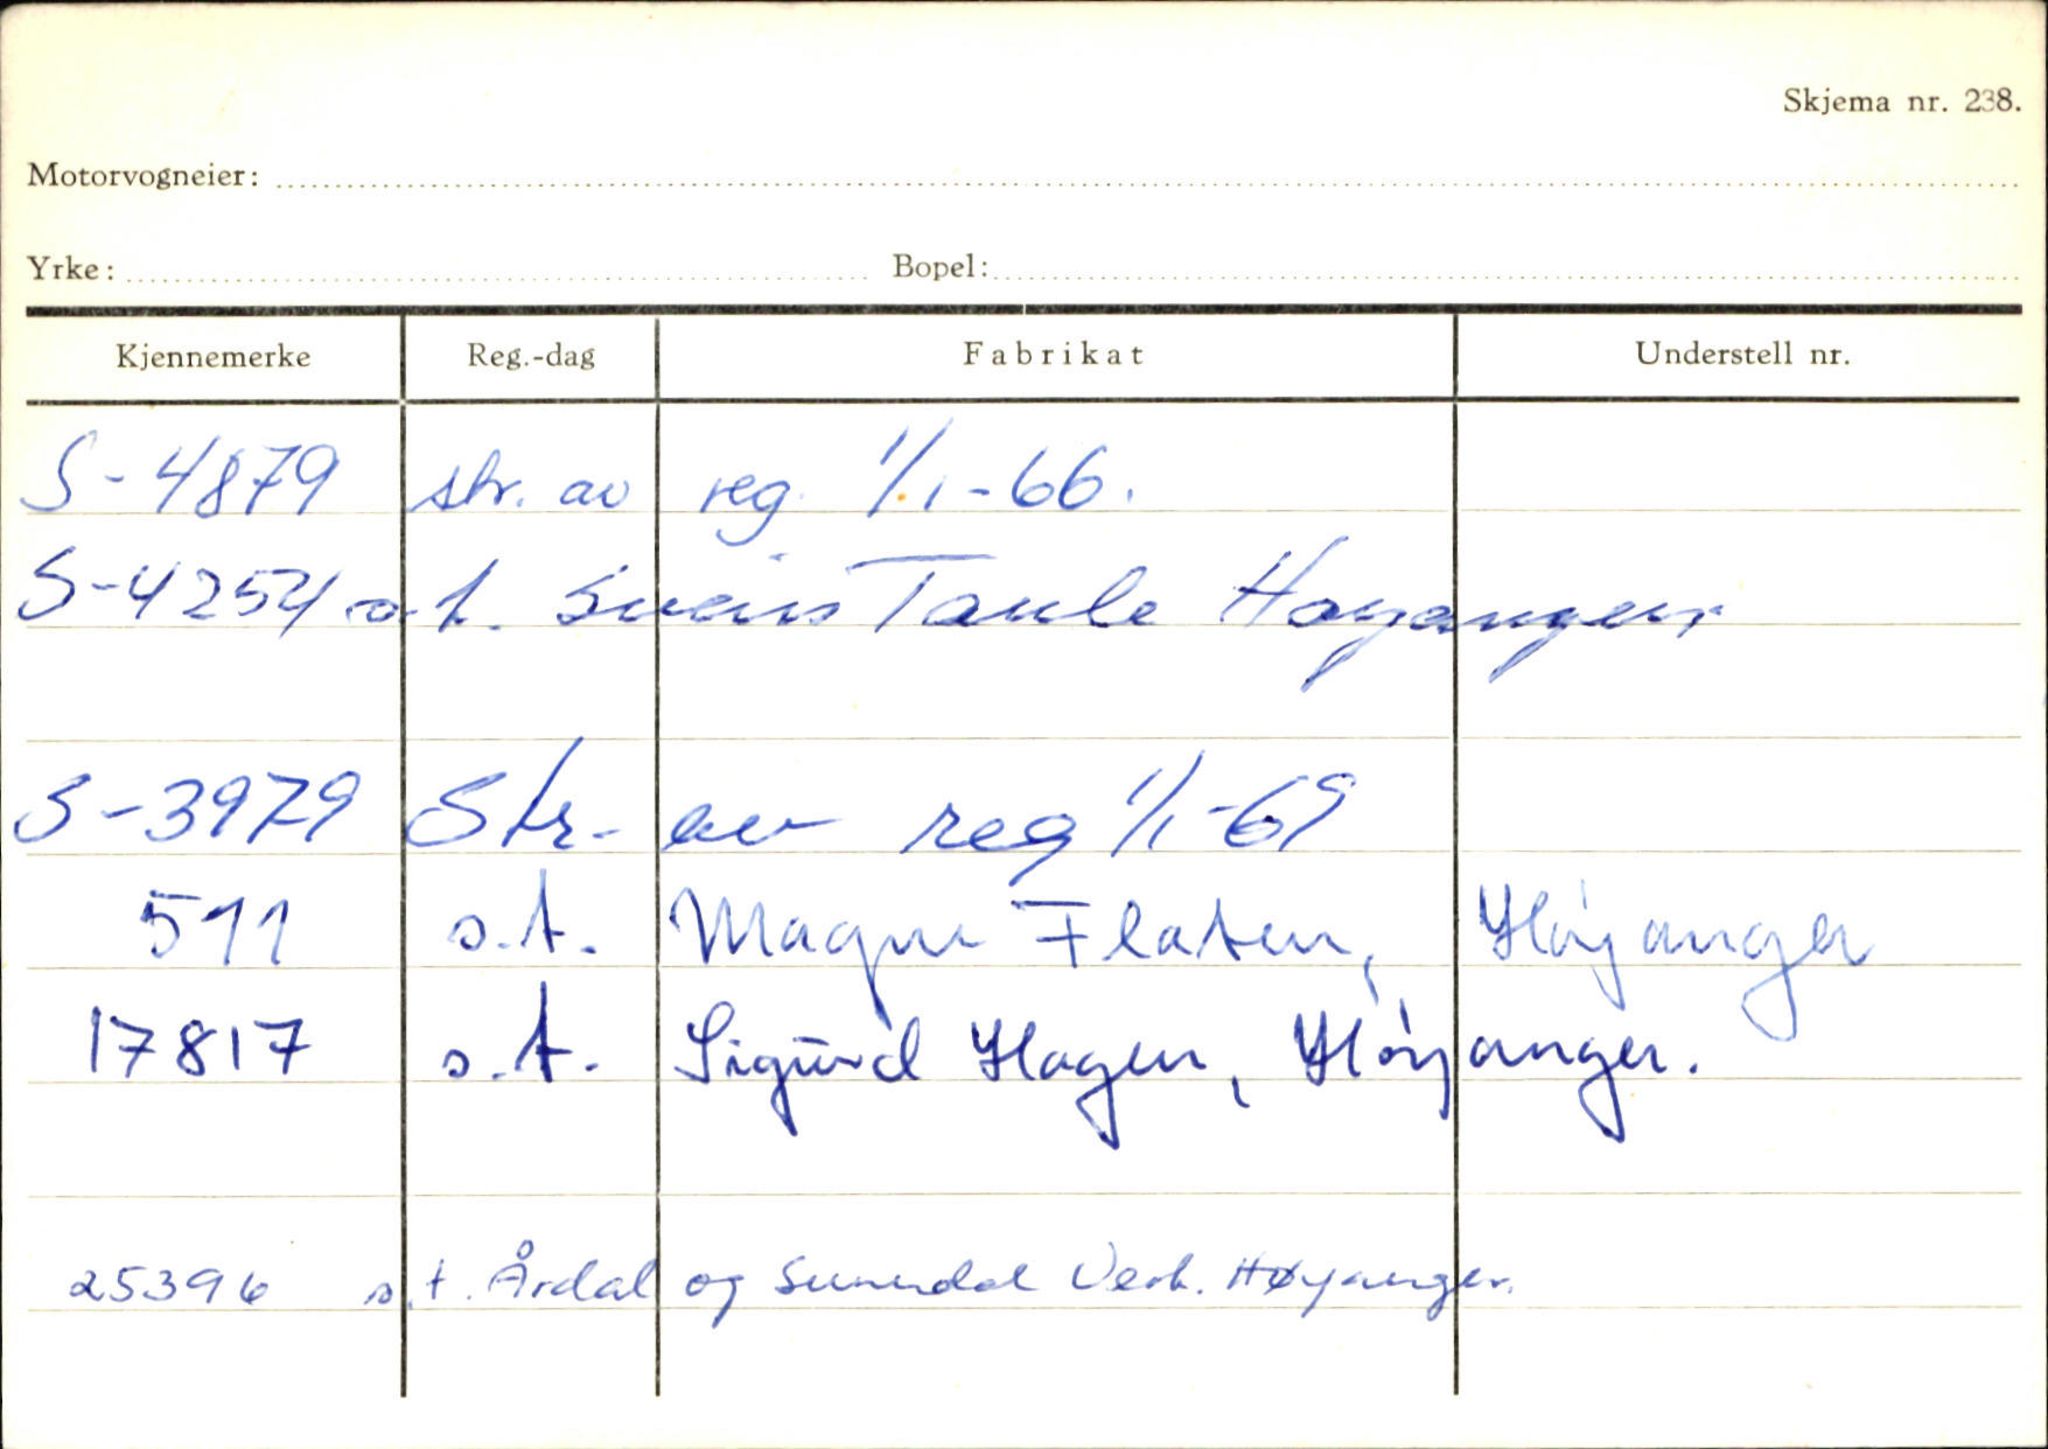 Skjema nr. 238.
Motorvogneier:
Yrke: Bopel:
Kjennemerke Reg.-dag Fabrikat Understell nr.
S-4879 str. av reg. 1/1-66.
S-4254 o.t. Svein Taule Høyanger
S-3979 Str. av reg 1/1-69
511 s.t. Magne Flaten, Høyanger
17817 s.t. Sigurd Hagen, Høyanger.
25396 s.t. Årdal og Sunndal Verk. Høyanger.